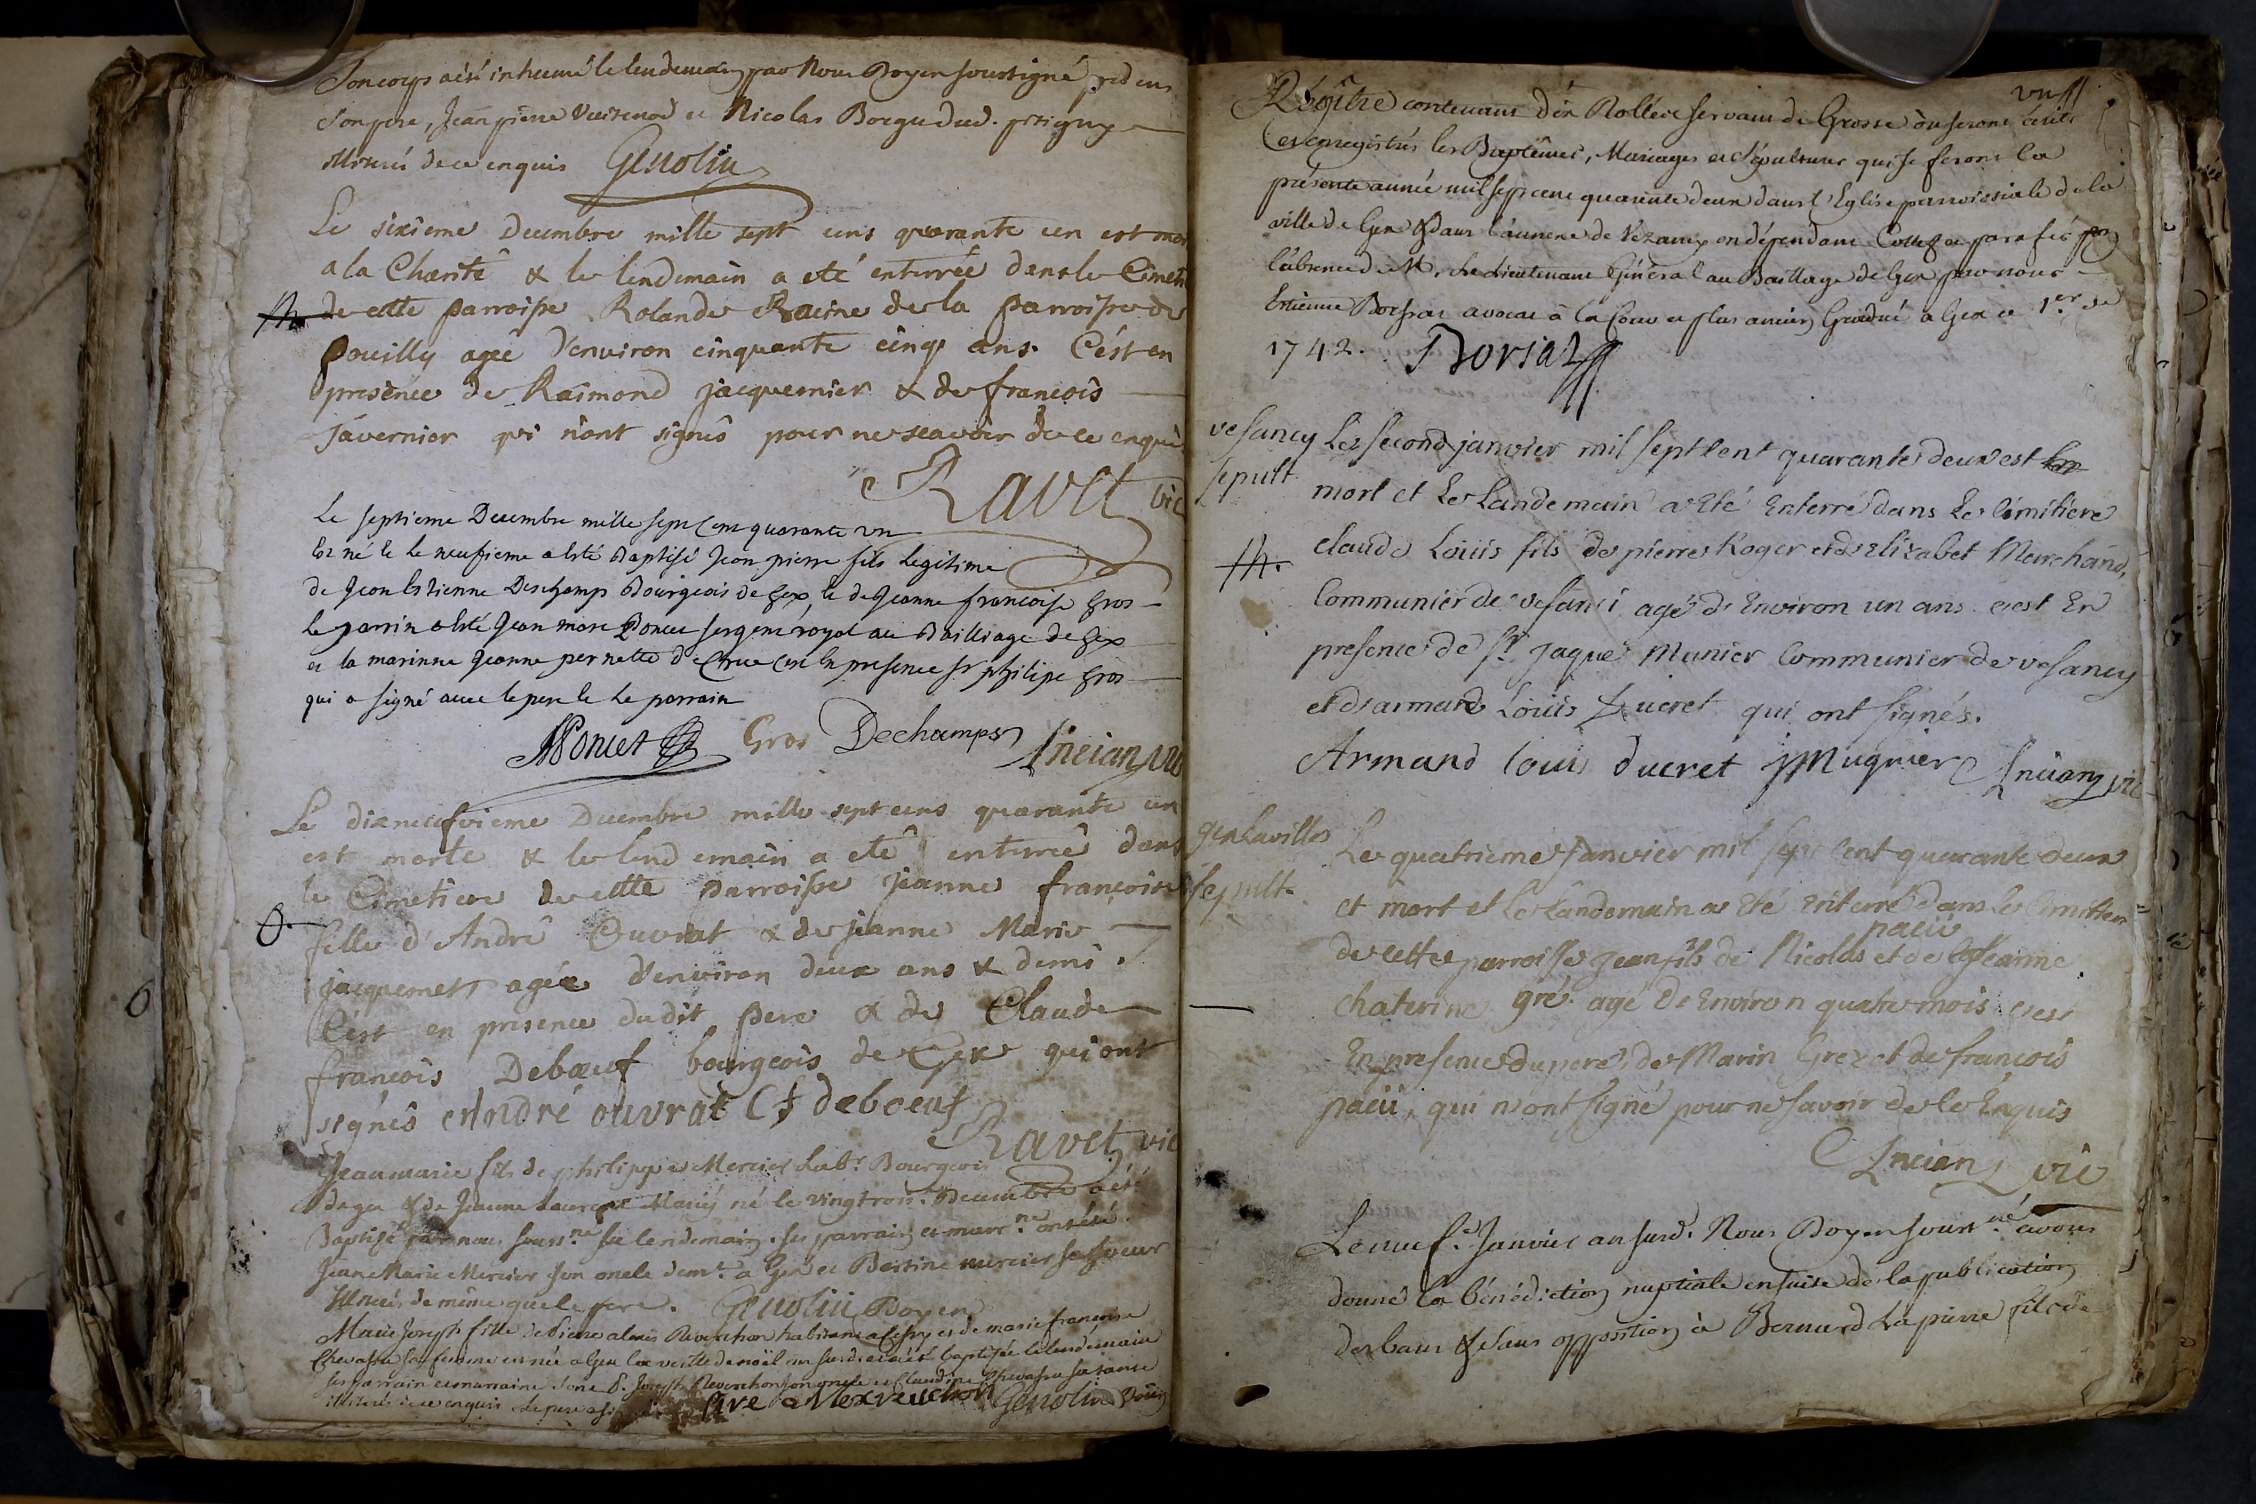 Son corps a été inhumé le lendemain par Nous Doyen soussigné
Son pere, Jean pierre et Nicolas
de ce enquis Genolin
Le sixième Decembre mille sept cens quarante un est
a la Charité & le lendemain a eté enterrée dans le
de cette parroisse Rolande Racine de la parroisse de
pouilly agée d'environ cinquante cinq ans. C'ést en
presence de Raimond jacquemier & de françois
javernier qui n'ont signés pour ne scavoir de ce enquis
Ravet vic
Le septieme Decembre mille sept Cent quarante un
Est né et le neufieme a Esté Baptisé Jean pierre fils Legitime
de Jean Estienne Deschamps Bourgeois de Gex, et de Jeanne francoise Gros
Le parrin a Esté Jean marc Poncet sergent royal au Bailliage de Gex
et la marinne Jeanne pernette en presence sr philipe Gros
qui a signé avec le pere et Le parrain
Poncet Gros Dechamps Ancian vic
Le dixneufvieme Decembre mille sept cens quarante un
est morte & le lendemain a eté enterrée dans
le Cimetiere de cette parroisse jeanne françoise
fille d'André Ouvrat & de jeanne Marie
jacquemet agée d'environ deux ans & demi.
C'est en presence dudit pere & de Claude
françois Debœuf bourgeois de Gex qui ont
signés André ouvrat Cf deboeuf
Ravet vic
Jean marie fils de philippe Mercier Labr. Bourgeois
de gex & de Jeanne né le vingt trois. Decembre a été
Baptisé par nous le lendemain. ses parrain et ont été
Jean Marie Mercier son oncle demt. a Gex et mercier sa soeur
de même que le pere. Genolin Doyen
Marie Joseph fille de Pierre alexis Reverchon habitant a et de marie francoise
Chevassu sa femme est née a Gex la veille de noël an susd. et a été baptisée le lendemain
ses parrain et marraine sont Joseph Reverchon son oncle et Claudine Chevassu sa tante
de ce enquis Le pere Genolin Doyen
Régître contenant dix Rolles servant de Grosse où seront écrits
et enregistrés les Baptêmes, Mariages et Sépultures qui se feront la
présente année mil sept cent quarante deux dans l'Eglise parroissiale de la
ville de Gex & dans l'annexe de Vezancy en dépendant. Cotté et parafés par
l'absence de Mr. le Lieutenant Général au Baillage de Gex par nous
Etienne Borssat avocat à la Cour et plus ancien Gradué a Gex ce 1er. de
1742. Borsat
vesancy sepult
Le second janvier mil sept Cent quarante deux est
mort et le Landemain a Eté Enterré dans le Cimitiere
claude Loüis fils de pierre Roger et d'Elizabet Marchand,
Communier de vesanci agé d'Environ un ans c'est En
presence de Sr. jaque Munier Communier de vesancy
et d'armand Loüis Ducret qui ont signés.
Armand Louis ducret j Mugnier Ancian vic
gex La ville sepult.
Le quatrieme Janvier mil sept Cent quarante deux
et mort et le Landemain a Eté Enterré dans le Cimitiere
de cette parroisse jean fils de Nicolas paciü et de Jeanne
chaterine gré agé de Environ quatre mois c'est
En presence du pere, de Marin Grez et de françois
paciü, qui n'ont signé pour ne savoir de Ce Enquis
Ancian vic
Le neufe. Janvier an susd. Nous Doyen sousné avons
donné la bénédiction nuptiale ensuite de la publication
des bans & sans opposition à Bernard Lapierre fils de